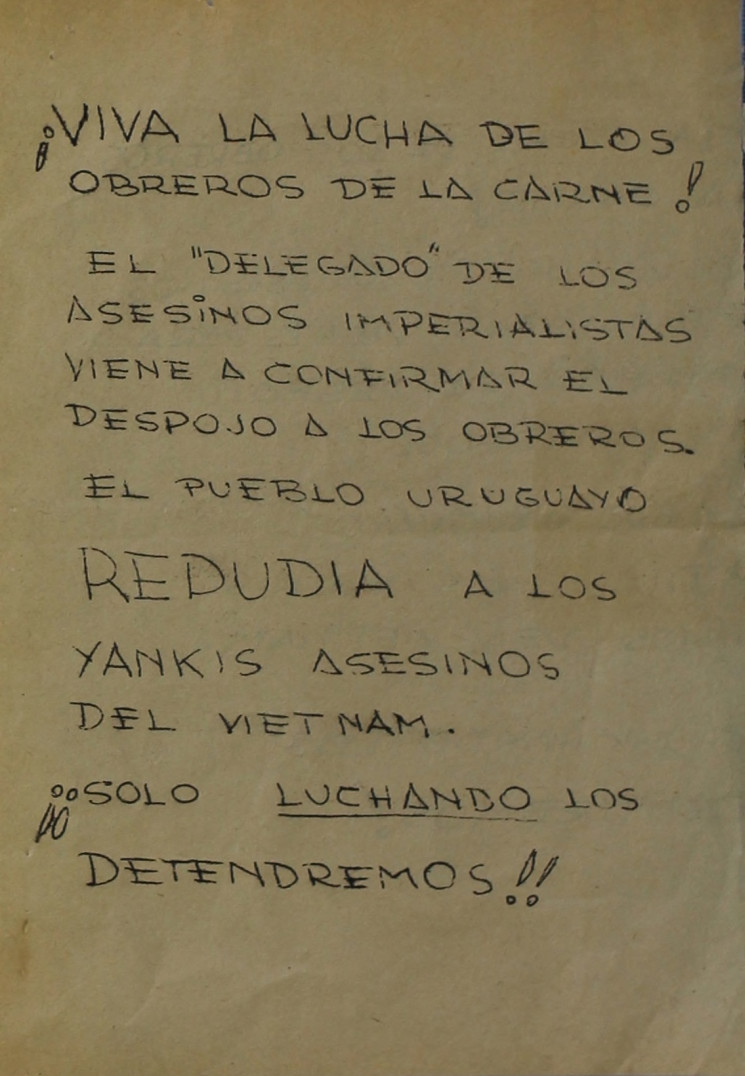 ¡VIVA LA LUCHA DE LOS
OBREROS DE LA CARNE!
EL "DELEGADO" DE LOS
ASESINOS IMPERIALISTAS
VIENE A CONFIRMAR EL
DESPOJO A LOS OBREROS.
EL PUEBLO URUGUAYO
REPUDIA A LOS
YANKIS ASESINOS
DEL VIETNAM.
¡¡SOLO LUCHANDO LOS
DETENDREMOS!!